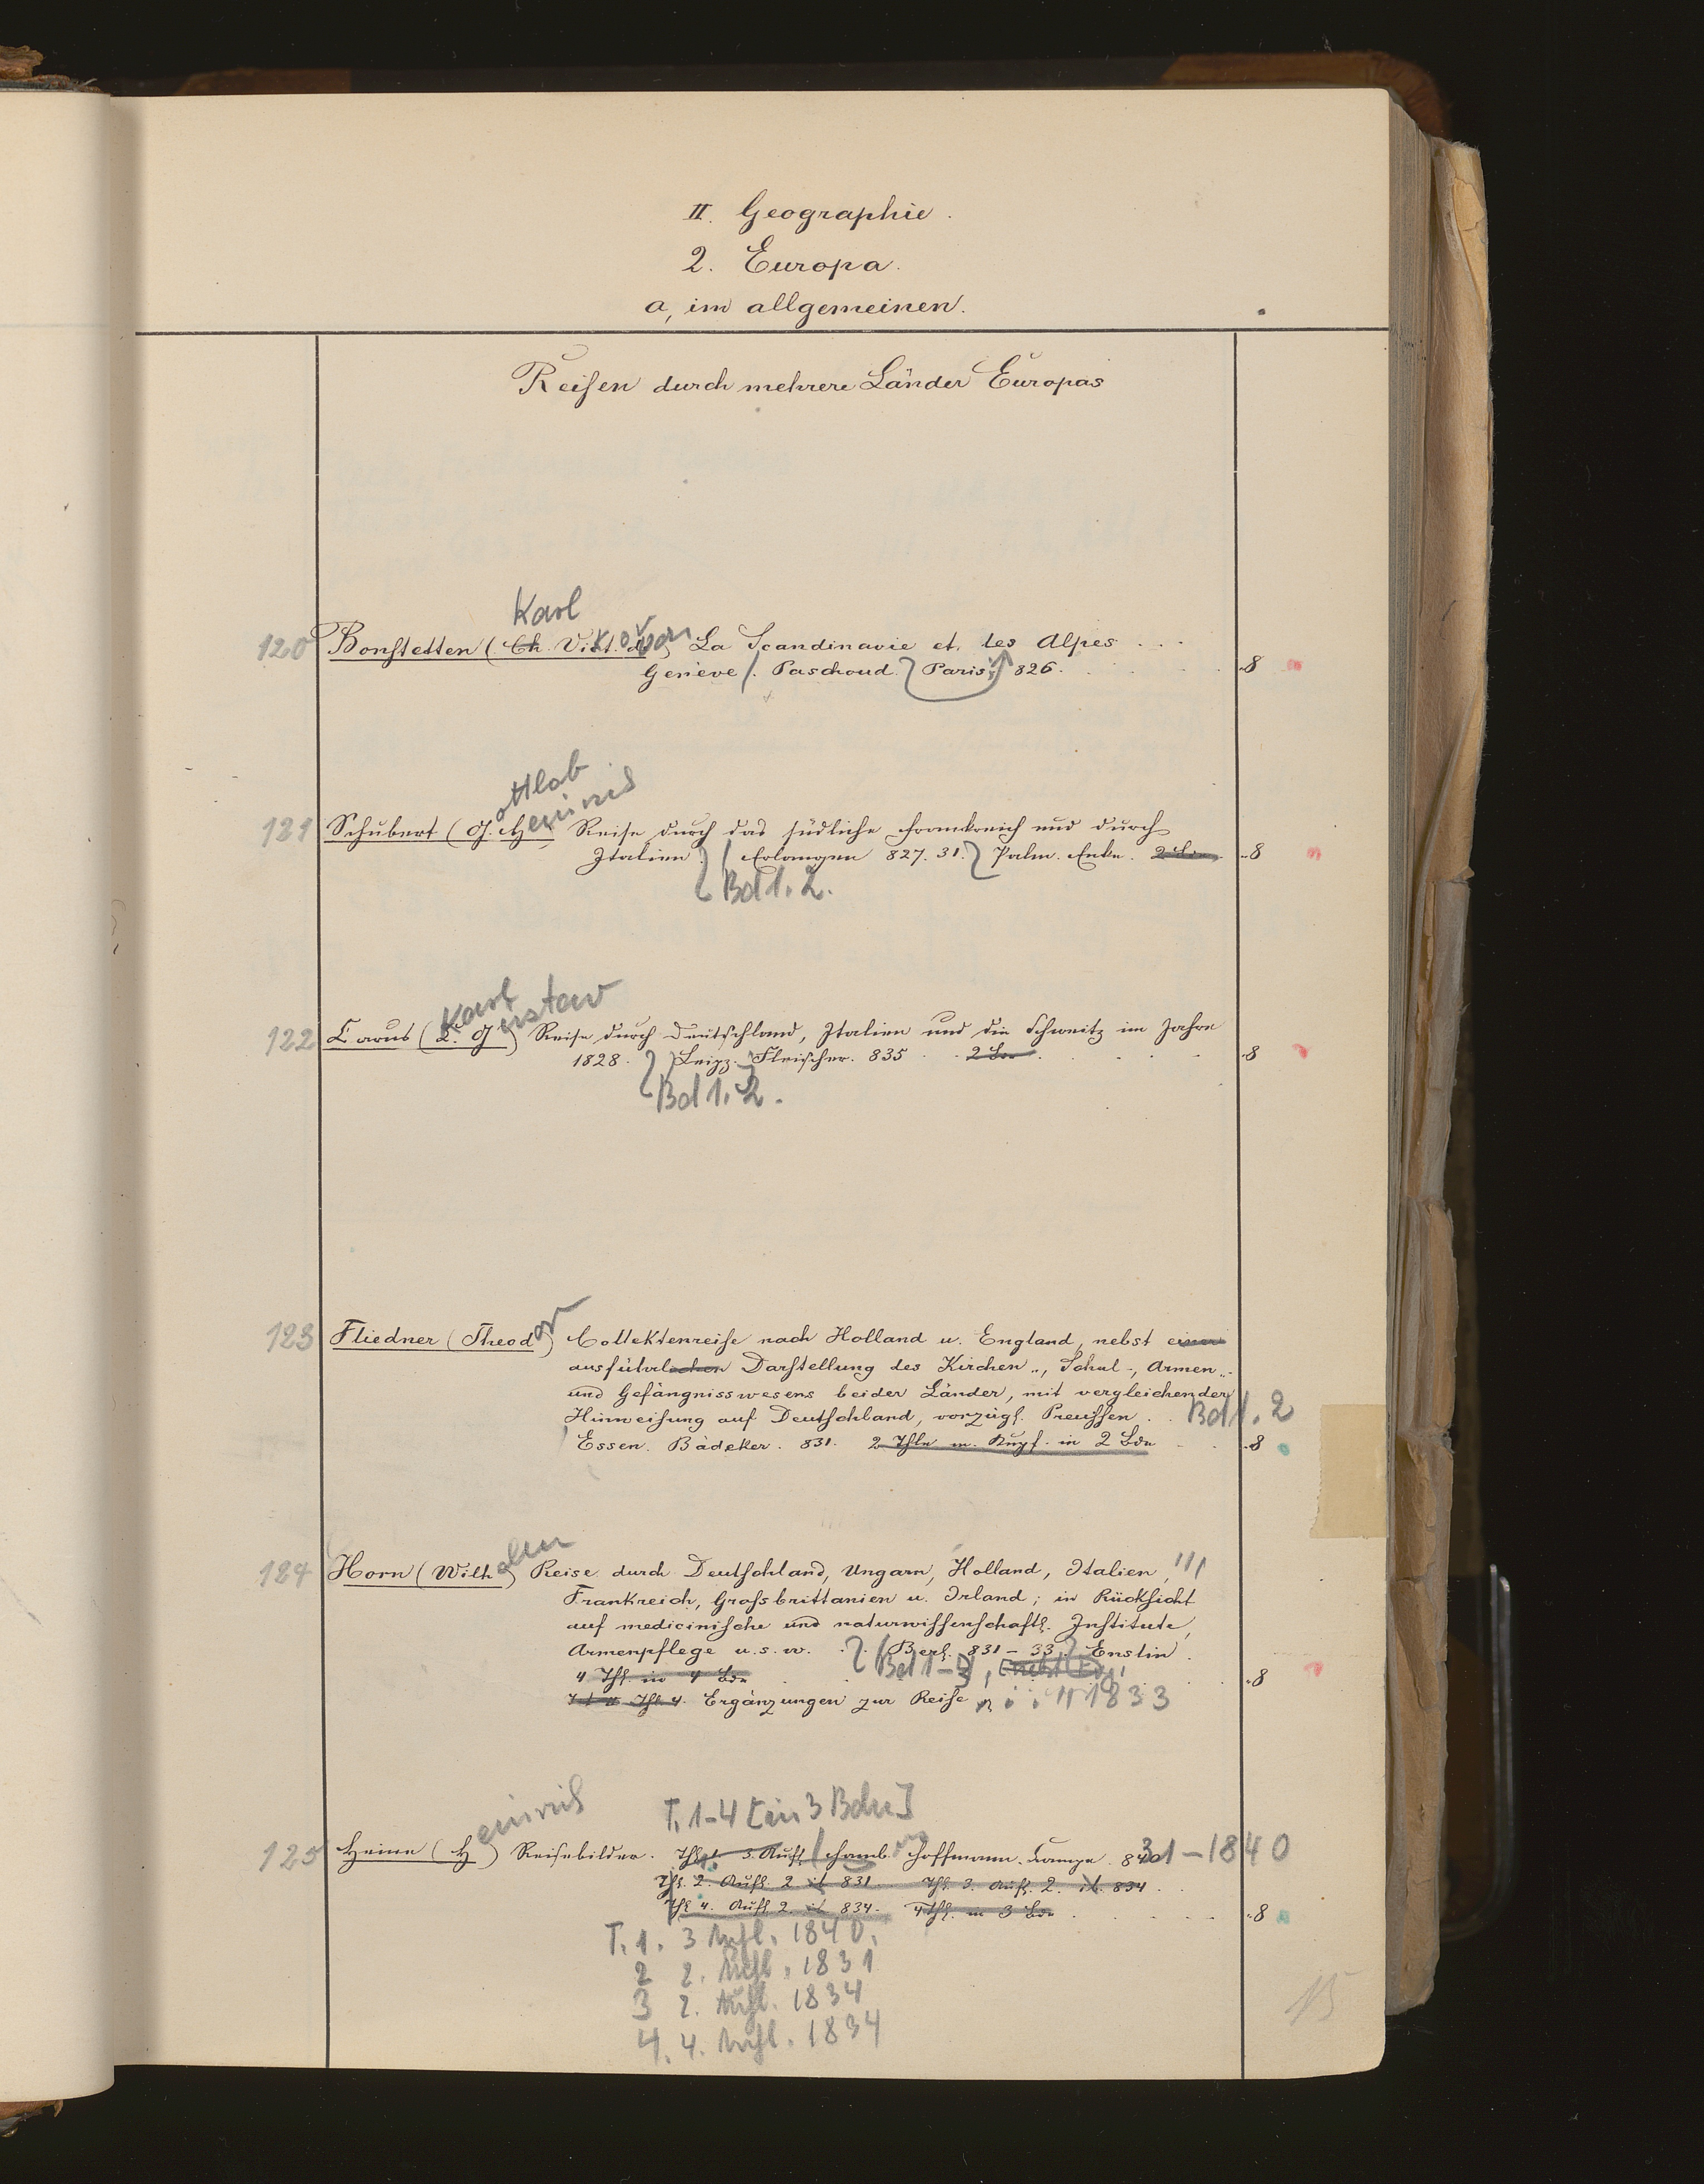 II. Geographie.
2. Europa.
a, im allgemeinen.
Reisen durch mehrere Länder Europas
Karl
120 Bonstetten (Ch. Vikt. von) La Scandinavie et les Alpes . . .
Genève. Paschoud. Paris. 826. 8
ottlob
einrich
121 Schubert (G. H.) Reise durch das südliche Frankreich und durch
Italien. Erlangen 827. 31. Palm. Enke. 2 Bde. 8
Bd 1. 2.
Karl ustav
122 Carus (C. G.) Reise durch Deutschland, Italien und die Schweitz im Jahre
1828. Leipz. Fleischer. 835. 2 Bde. 8
Bd 1. 2.
or
123 Fliedner (Theod.) Collektenreise nach Holland u. England, nebst einer
ausführlichen Darstellung des Kirchen-, Schul-, Armen-
und Gefängnisswesens beider Länder, mit vergleichender
Hinweisung auf Deutschland, vorzügl. Preussen. Bd 1. 2
Essen. Bädeker. 831. 2 Thle m. Kupf. in 2 Bde 8
elm
124 Horn (Wilh.) Reise durch Deutschland, Ungarn, Holland, Italien,
Frankreich, Grossbrittanien u. Irland; in Rücksicht
auf medicinische und naturwissenschaftl. Institute,
Armenpflege u. s. w. Berl. 831-33. Enslin.
Bd 1-3,
4 Thl. in 4 Bde 8
Thl. 4. Ergänzungen zur Reise 1833
T. 1-4 [in 3 Bdn]
einrich
125 Heine (H.) Reisebilder. Thl. 1. 3. Aufl. Hamb. Hoffmann. Campe. 831-1840
Thl. 2. Aufl. 2. ib. 831. Thl. 3. Aufl. 2. ib. 834.
Thl. 4. Aufl. 2. ib. 834. 4 Thl. in 3 Bde. 8
T. 1. 3 Aufl. 1840.
2 2. Aufl. 1831
3 2. Aufl. 1834
4. 4. Aufl. 1834
15